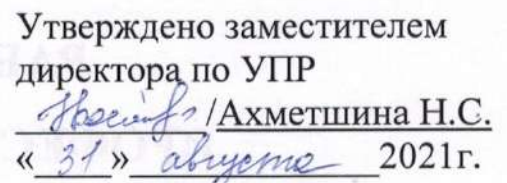 Утверждено заместителем
директора по УПР
/Ахметшина Н.С.
« 31 » августа 2021г.